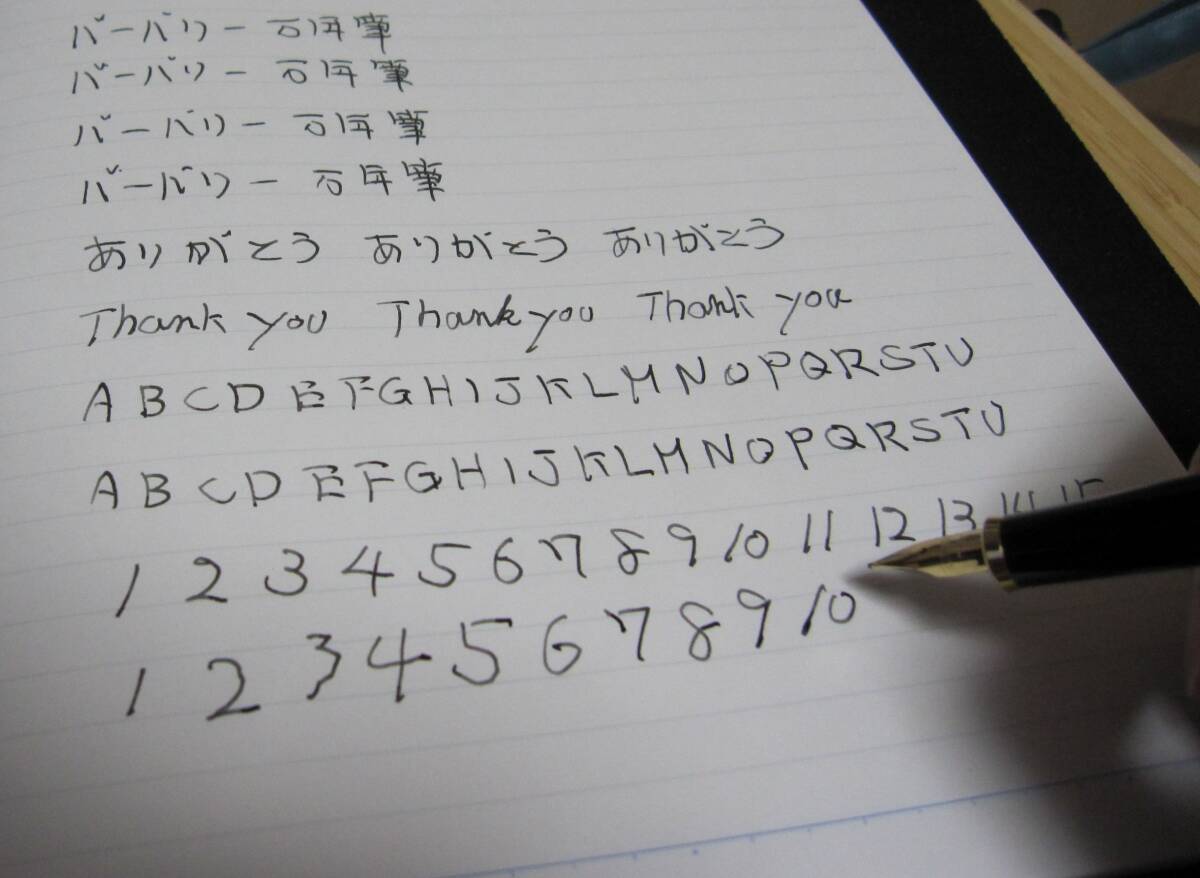 バーバリー 万年筆
バーバリー 万年筆
バーバリー 万年筆
バーバリー 万年筆
ありがとう ありがとう ありがとう
Thank you Thank you Thank you
A B C D E F G H I J K L M N O P Q R S T U
A B C D E F G H I J K L M N O P Q R S T U
1 2 3 4 5 6 7 8 9 10 11 12 13 14 15
1 2 3 4 5 6 7 8 9 10